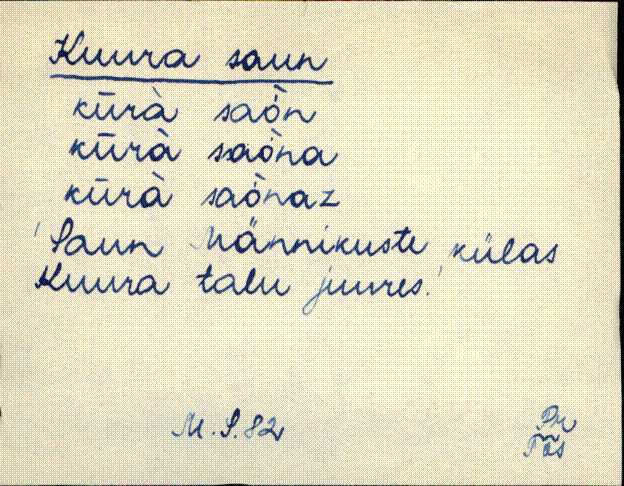 Kuura saun
kūrà saòn
kūrà saòna
kūrà saònaz
'Saun Männikuste külas
Kuura talu juures.'
M. S. 82
Pä
Tõs